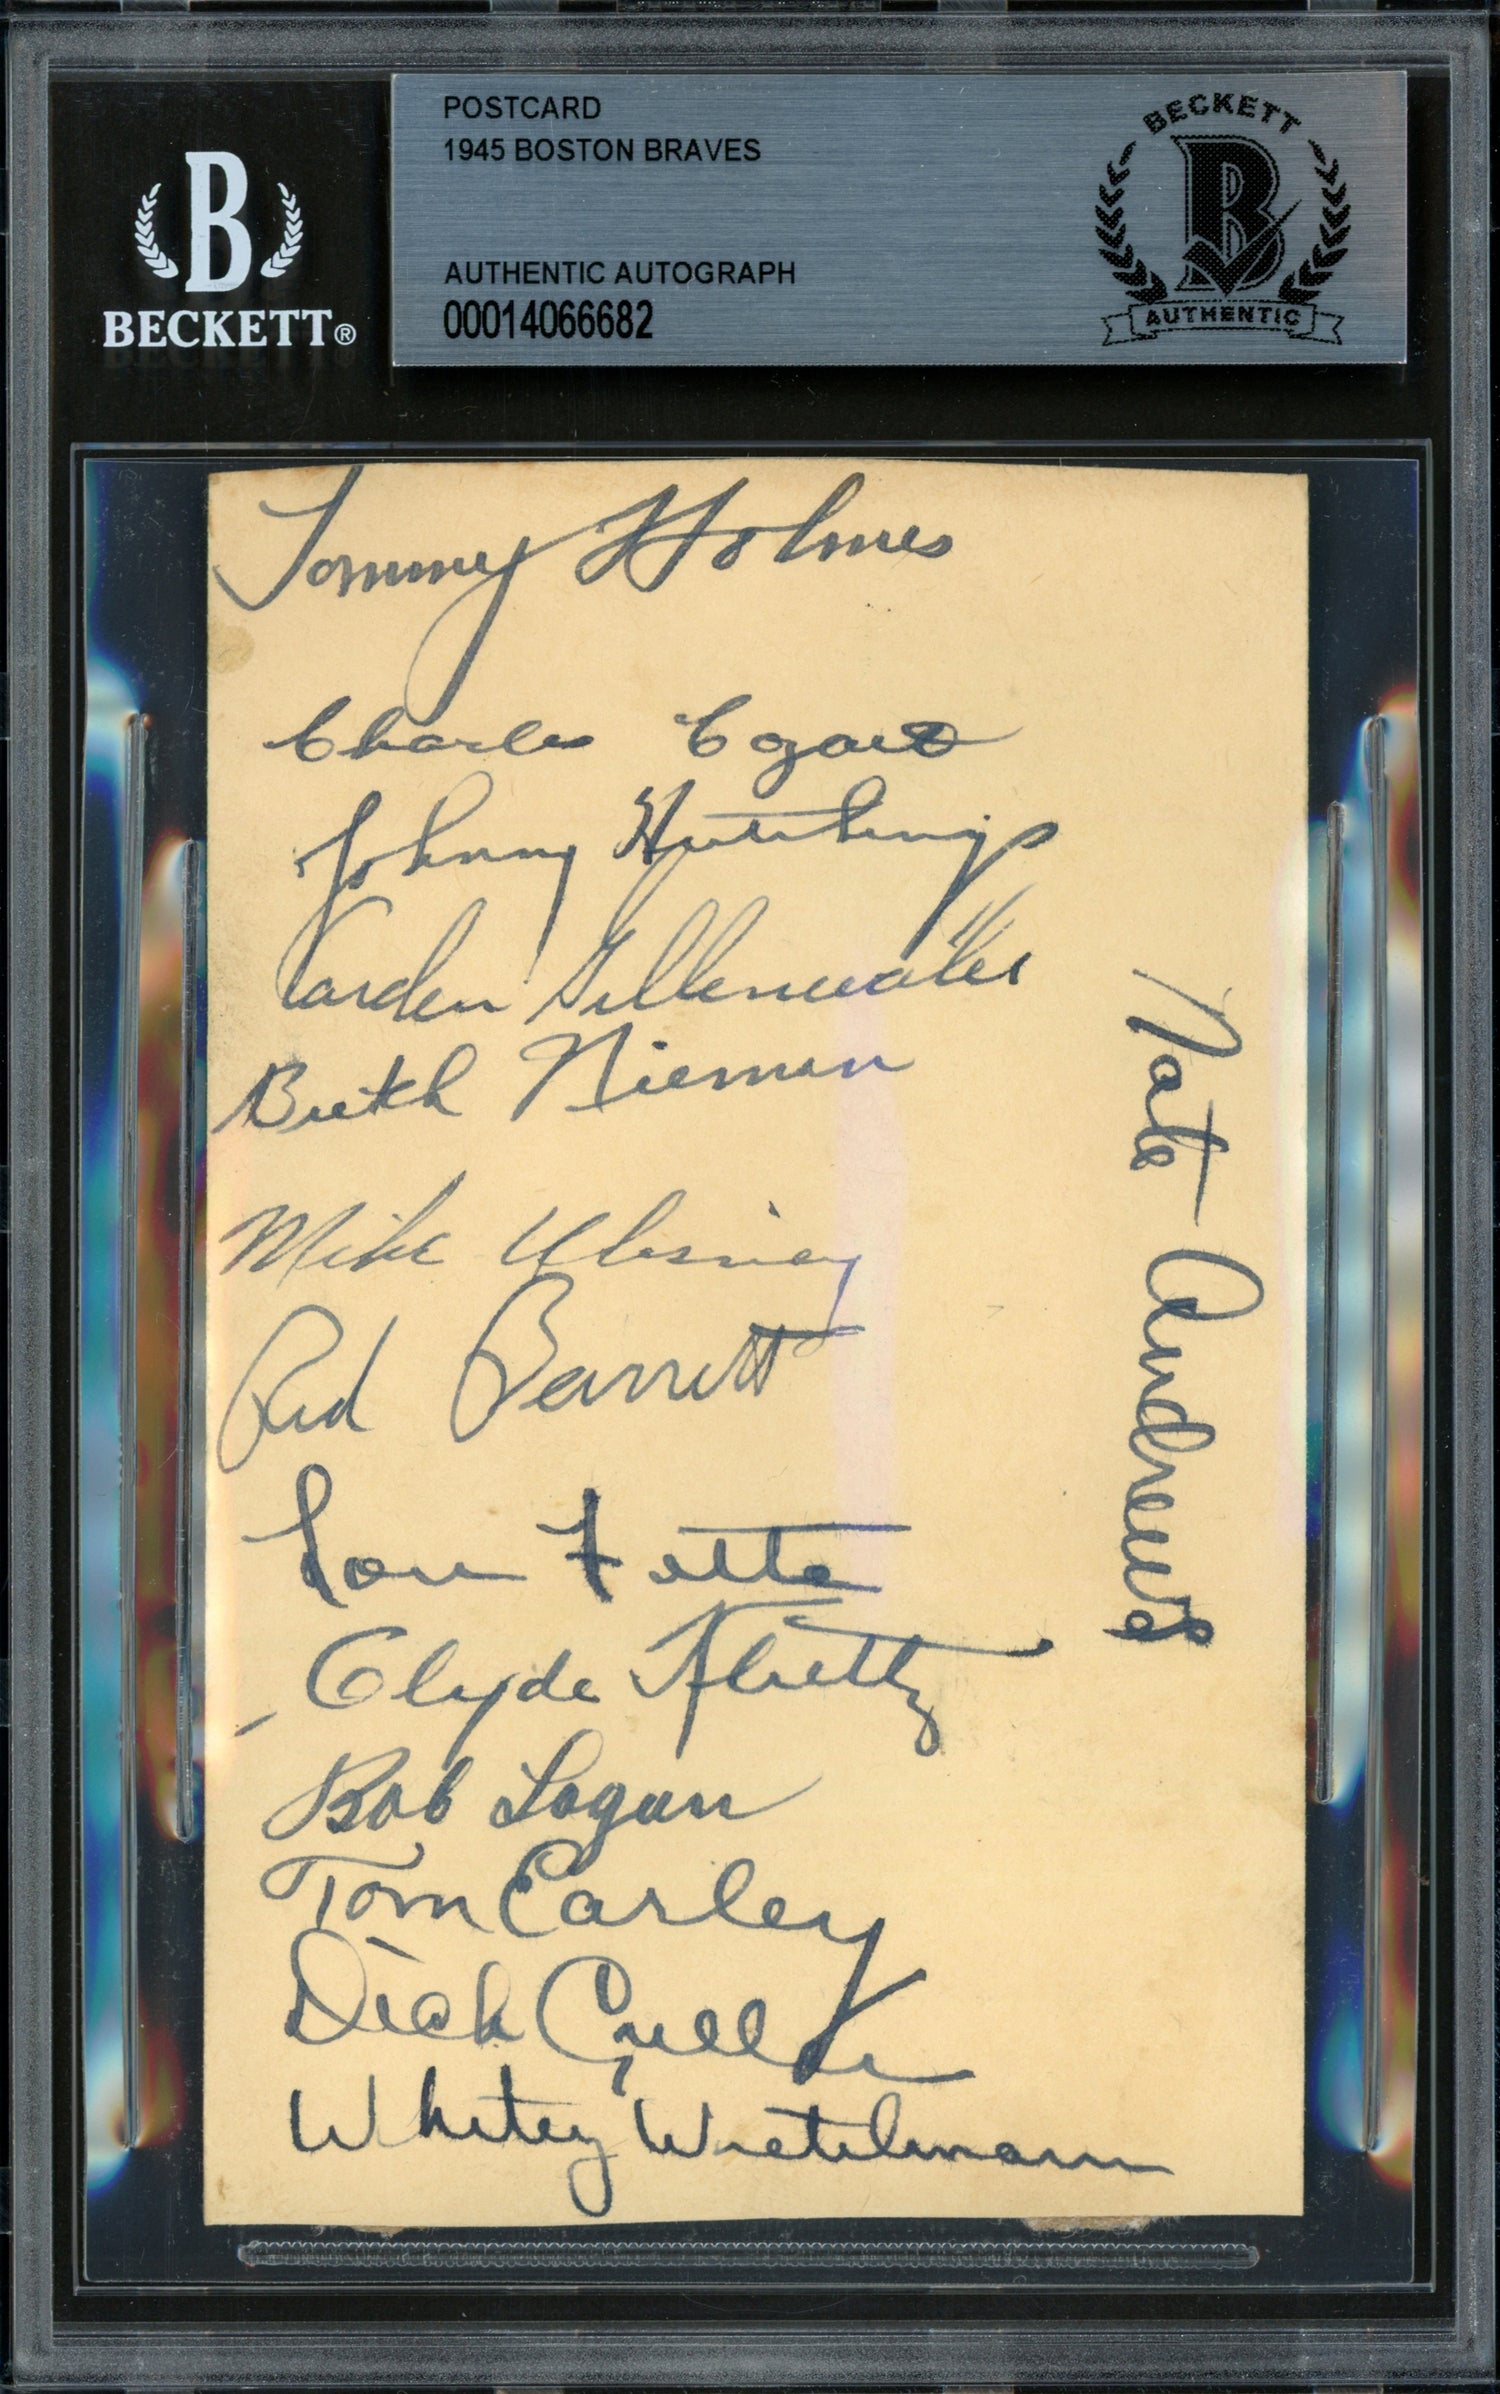 POSTCARD
1945 BOSTON BRAVES
AUTHENTIC AUTOGRAPH
00014066682
B
BECKETT®
BECKETT
B
AUTHENTIC
Tommy Holmes
Charles Cozart
Johnny Hutchings
Carden Gillenwater
Butch Nieman
Mike Ulisney
Red Barrett
Lou Fette
Clyde Kluttz
Bob Logan
Tom Earley
Dick Culler
Whitey Wietelmann
Nate Andrews